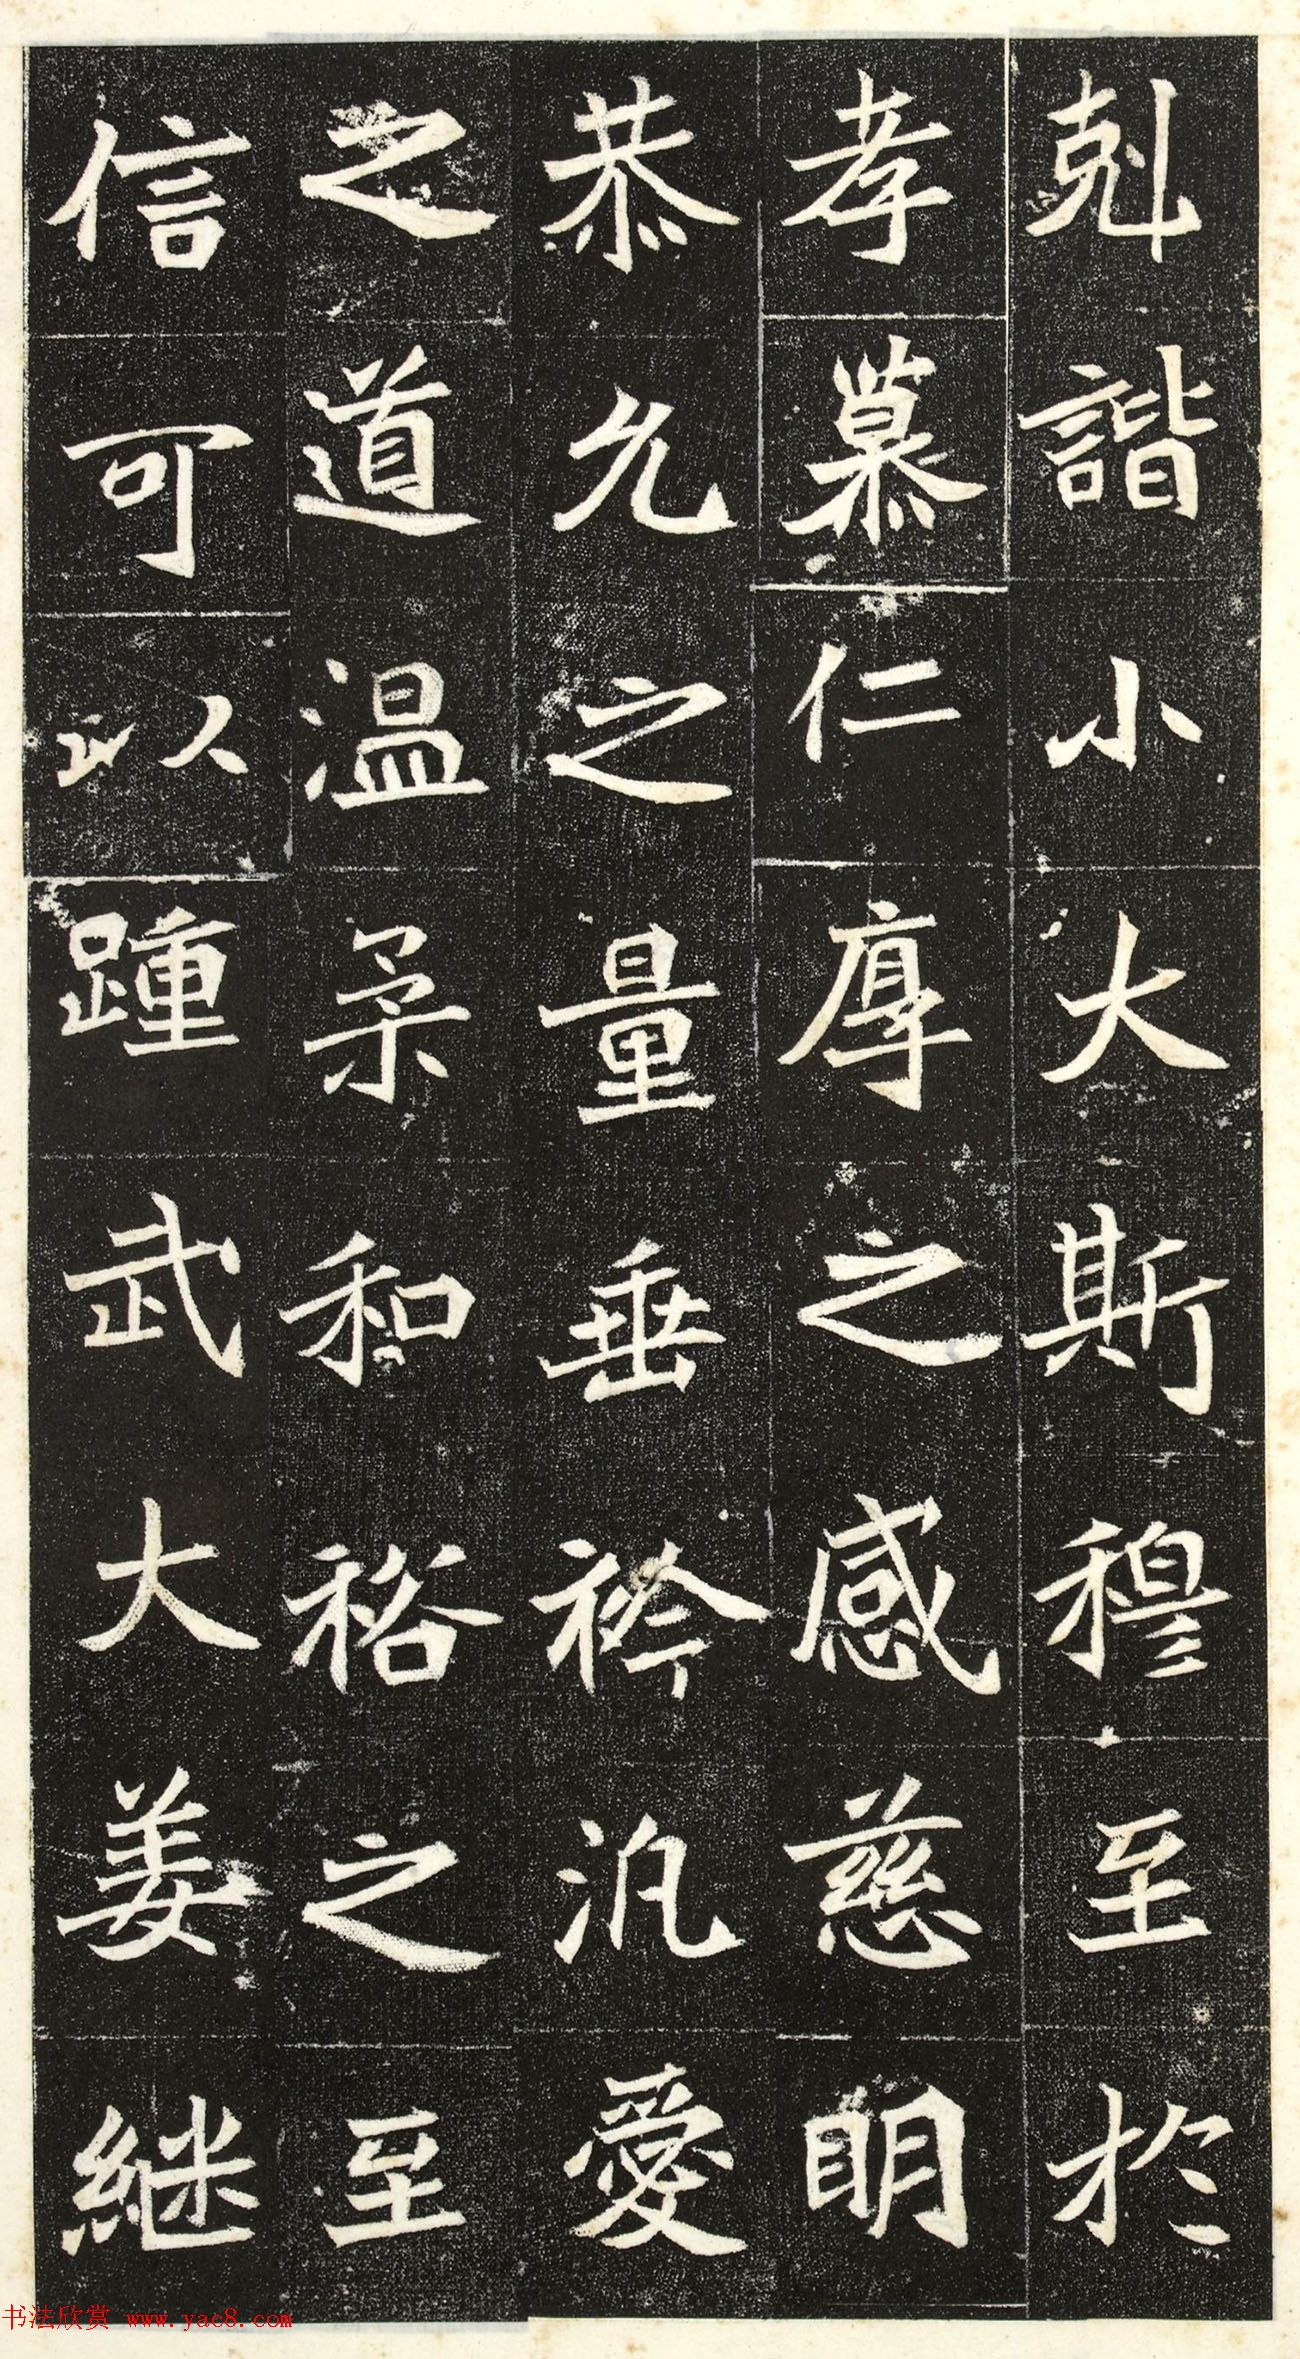 剋諧小大斯穆至於
孝慕仁厚之感慈明
恭允之量垂衿汎愛
之道溫柔和裕之至
信可以踵武大姜継
书法欣赏 www.yac8.com